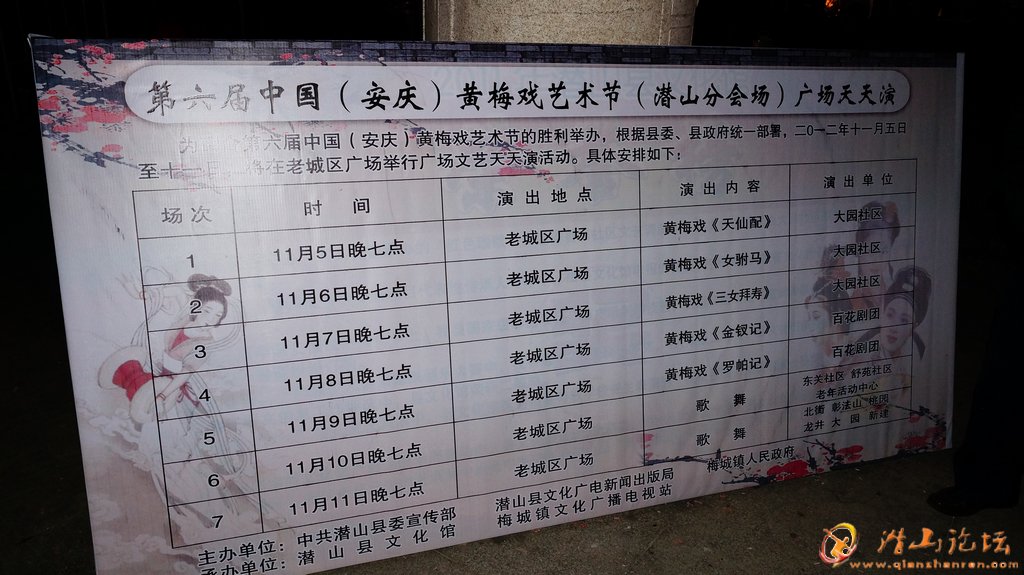 第六届中国（安庆）黄梅戏艺术节（潜山分会场）广场天天演
为 第六届中国（安庆）黄梅戏艺术节的胜利举办，根据县委、县政府统一部署，二〇一二年十一月五日
至十一 在老城区广场举行广场文艺天天演活动。具体安排如下：
场次 时间 演出地点 演出内容 演出单位
1 11月5日晚七点 老城区广场 黄梅戏《天仙配》 大园社区
2 11月6日晚七点 老城区广场 黄梅戏《女驸马》 大园社区
3 11月7日晚七点 老城区广场 黄梅戏《三女拜寿》 大园社区
4 11月8日晚七点 老城区广场 黄梅戏《金钗记》 百花剧团
5 11月9日晚七点 老城区广场 黄梅戏《罗帕记》 百花剧团
6 11月10日晚七点 老城区广场 歌舞 东关社区 舒苑社区
老年活动中心
7 11月11日晚七点 老城区广场 歌舞 北街 彰法山 桃园
龙井 大园 新建
主办单位：中共潜山县委宣传部 潜山县文化广电新闻出版局 梅城镇人民政府
承办单位：潜山县文化馆 梅城镇文化广播电视站
潜山论坛
www.qianshanren.com